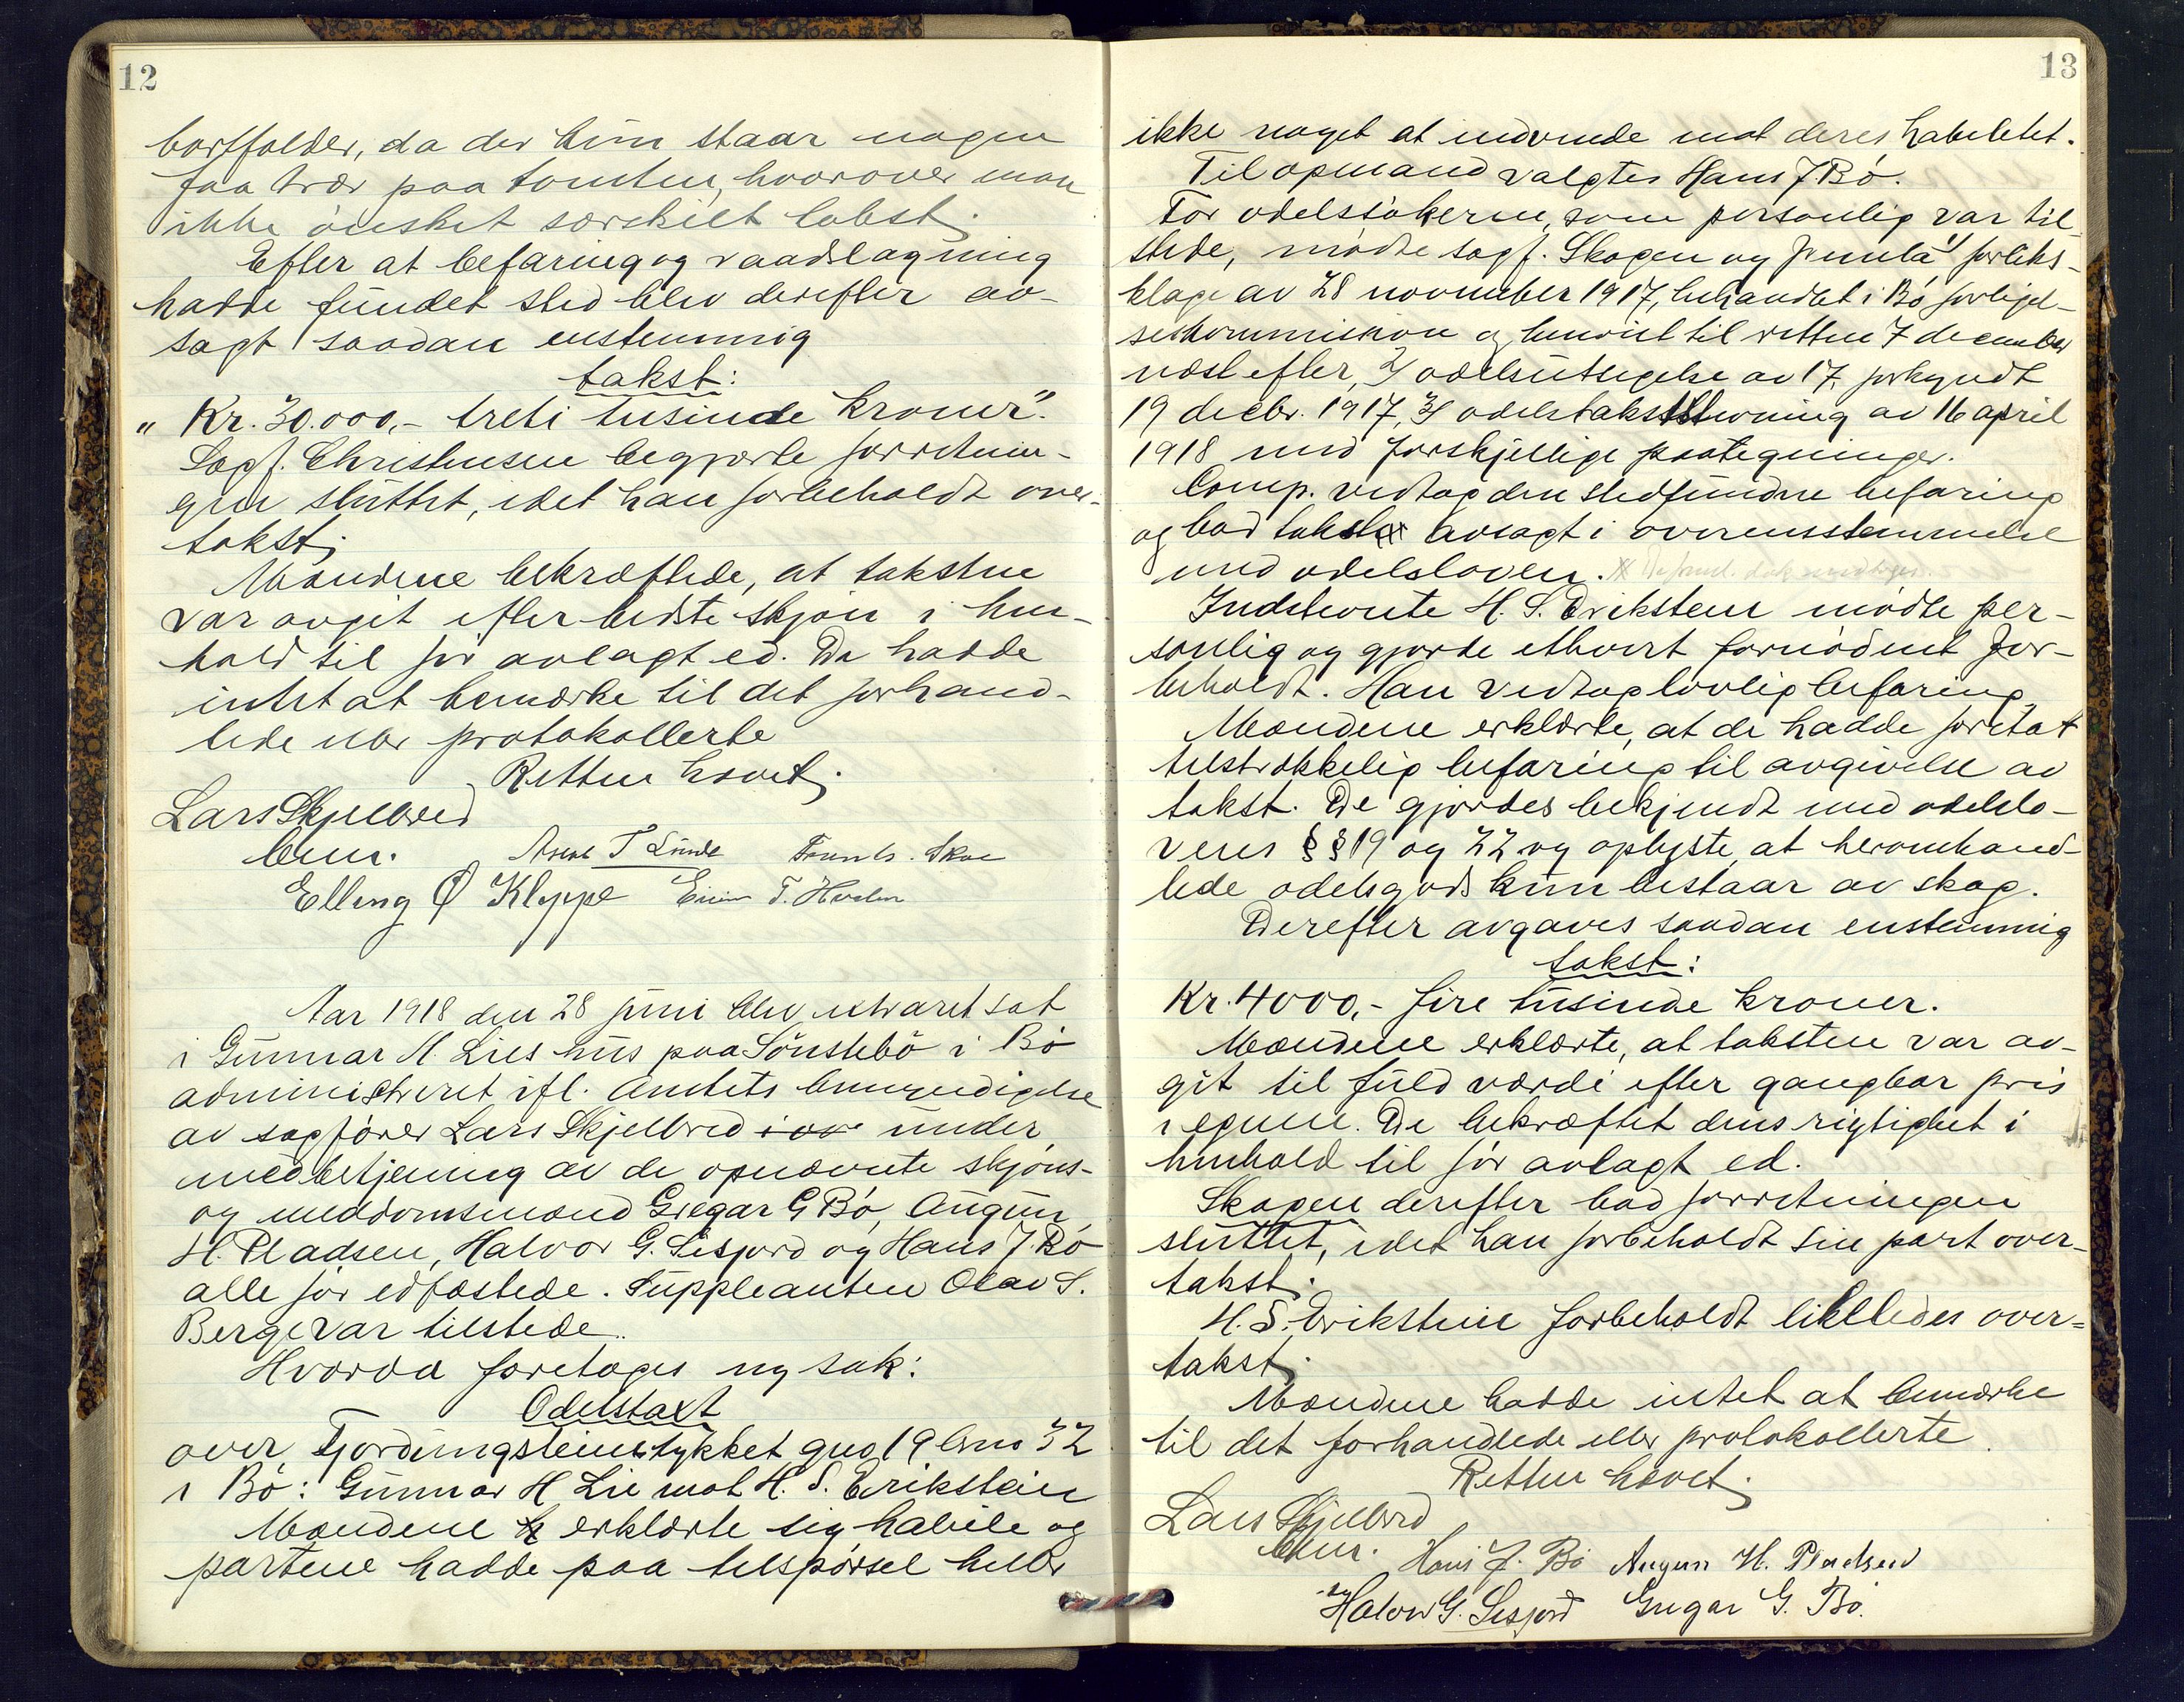 12
bortfalder, da der kun staar nogen
faa trær paa tomten, hvorover man
ikke ønsket særskilt takst.
Efter at befaring og raadslagning
hadde fundet sted blev derefter av-
sagt saadan enstemmig
takst:
"Kr. 30.000,- treti tusinde kroner".
Sagf. Christensen begjærte forretnin-
gen sluttet, idet han forbeholdt over-
takst.
Mændene bekræftede, at takstene
var avgit efter bedste skjøn i hen-
hold til før avlagt ed. De hadde
intet at bemærke til det forhand-
lede eller protokollerte
Retten hævet.
Lars Skjelbred
bem.
T Lunde
Elling Ø Kleppe
Aar 1918 den 28 juni blev extraret sat
i Gunnar H. Lies hus paa Sønstebø i Bø
administreret ifl. amtets bemyndigelse
av sagfører Lars Skjelbred under
medbetjening av de opnævnte skjøns-
og meddomsmænd Gregar G Bø, Augun
H. Pladsen, Halvor G. Sisjord og Hans J. Bø
alle før edfæstede. Suppleanten Olav S.
Berge var tilstede.
Hvorda foretoges ny sak:
Odelstaxt
over Fjordungsteinstykket gno 19 bno 32
i Bø: Gunnar H Lie mot H. S. Erikstein
Mændene erklærte sig habile og
partene hadde paa tilspørsel heller
13
ikke noget at indvende mot deres habilitet.
Til opmand valgtes Hans J Bø.
For odelssøkeren, som personlig var til-
stede, mødte sagf. Skogen og fremla 1/ forliks-
klage av 28 november 1917, behandlet i Bø forligel-
seskommission og henvist til retten 7 december
næst efter, 2/ odelsutsigelse av 17, forkyndt
19 decbr. 1917, 3/ odelstakststevning av 16 april
1918 med forskjellige paategninger.
Comp. vedtog den stedfundne befaring
og bad takst avsagt i overensstemmelse
med odelsloven.
Indstevnte H. S. Erikstein mødte per-
sonlig og gjorde ethvert fornødent for-
behold. Han vedtog lovlig befaring
Mændene erklærte, at de hadde foretat
tilstrækkelig befaring til avgivelse av
takst. De gjordes bekjendt med odelslo-
vens §§ 19 og 22 og oplyste, at heromhand-
lede odelsgods kun bestaar av skog.
Derefter avgaves saadan enstemmig
takst:
Kr. 4000,- fire tusinde kroner.
Mændene erklærte, at taksten var av-
git til fuld værdi efter gangbar pris
i egnen. De bekræftet dens rigtighet i
henhold til før avlagt ed.
Skogen derefter bad forretningen
sluttet, idet han forbeholdt sin part over-
takst.
H. S. Erikstein forbeholdt likeledes over-
takst.
Mændene hadde intet at bemærke
til det forhandlede eller protokollerte.
Retten hævet.
Lars Skjelbred
bem. Hans J. Bø Augun H. Pladsen
Halvor G. Sisjord Gregar G. Bø.